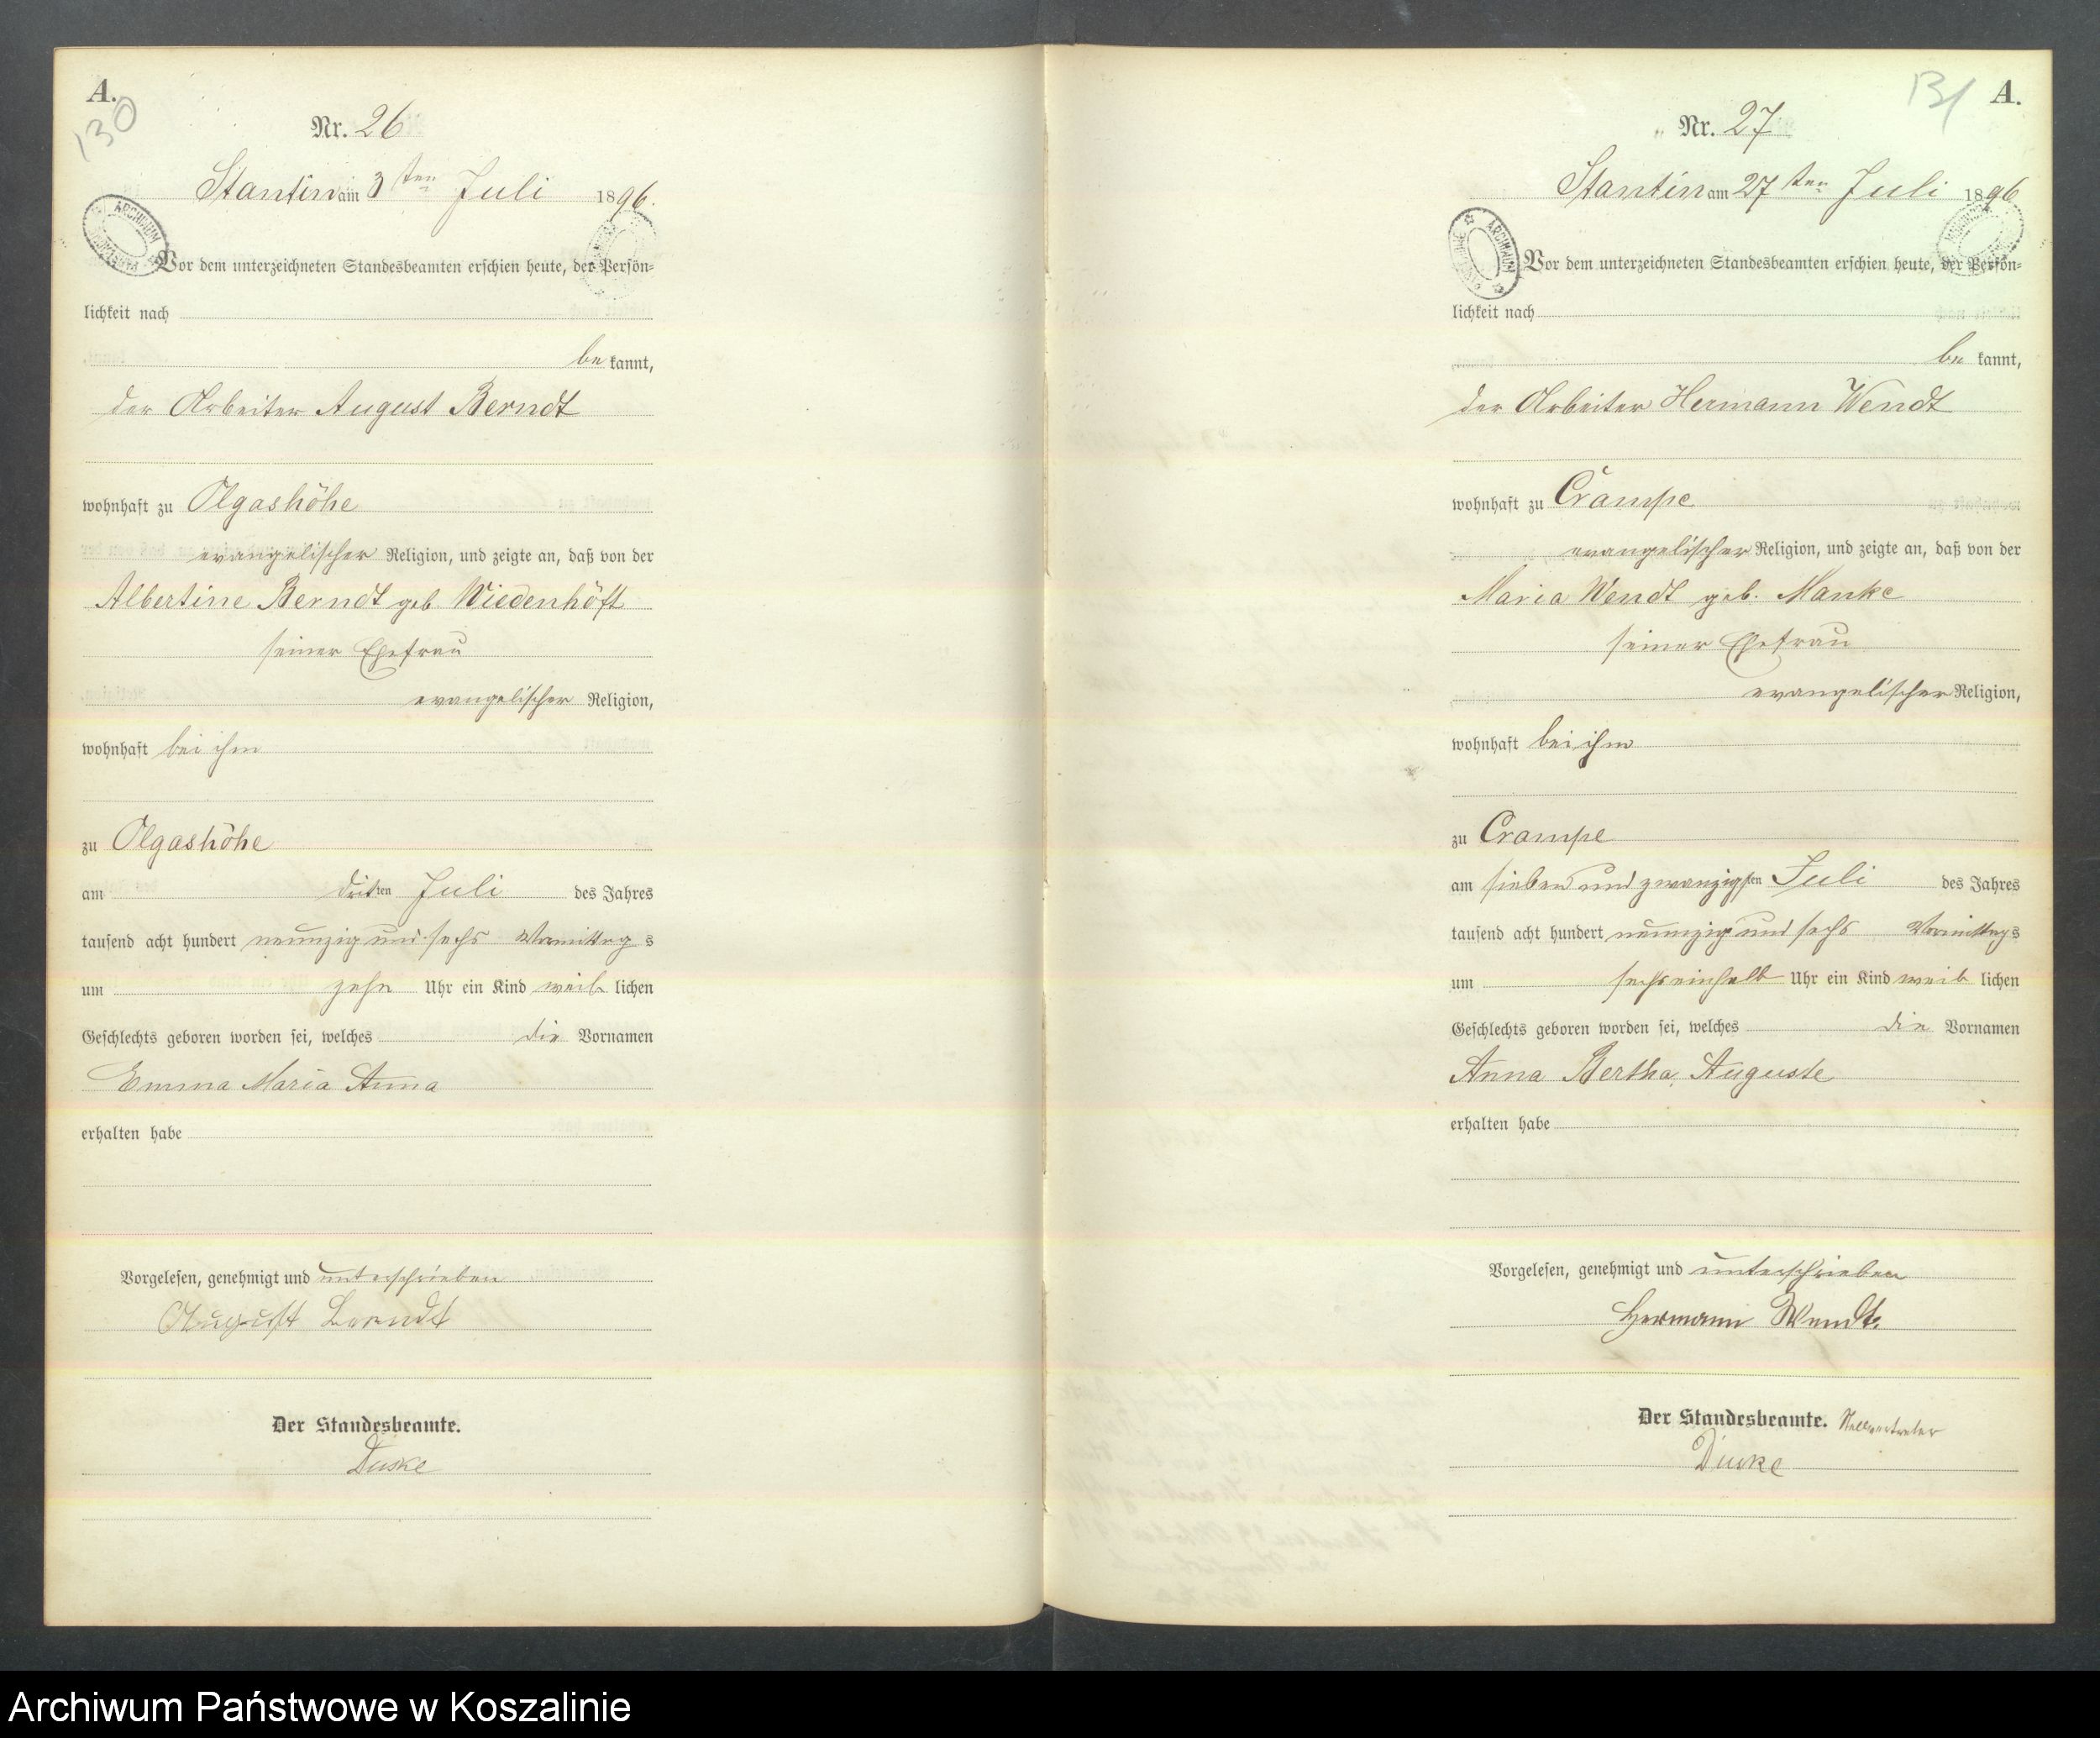 A.
130
Nr. 26
Stantin am 3ten Juli 1896.
Vor dem unterzeichneten Standesbeamten erschien heute, der Persön-
lichkeit nach
be kannt,
der Arbeiter August Berndt
wohnhaft zu Olgashöhe
evangelischer Religion, und zeigte an, daß von der
Albertine Berndt geb. Wiedenhöft
seiner Ehefrau
evangelischer Religion,
wohnhaft bei ihm
zu Olgashöhe
am dritten Juli des Jahres
tausend acht hundert neunzig und sechs Vormittag s
um zehn Uhr ein Kind weib lichen
Geschlechts geboren worden sei, welches die Vornamen
Emma Maria Anna
erhalten habe
Vorgelesen, genehmigt und unterschrieben
August Berndt
Der Standesbeamte.
A.
131
Nr. 27
Stantin am 27ten Juli 1896
ARCHIWUM
Vor dem unterzeichneten Standesbeamten erschien heute, der Persön-
lichkeit nach
be kannt,
der Arbeiter Hermann Wendt
wohnhaft zu Crampe
evangelischer Religion, und zeigte an, daß von der
Maria Wendt geb. Manke
seiner Ehefrau
evangelischer Religion,
wohnhaft bei ihm
zu Crampe
am sieben und zwanzigsten Juli des Jahres
tausend acht hundert neunzig und sechs Vormittags
um sechseinhalb Uhr ein Kind weib lichen
Geschlechts geboren worden sei, welches die Vornamen
Anna Bertha Auguste
erhalten habe
Vorgelesen, genehmigt und unterschrieben
Hermann Wendt.
Der Standesbeamte. Stellvertreter
Archiwum Państwowe w Koszalinie